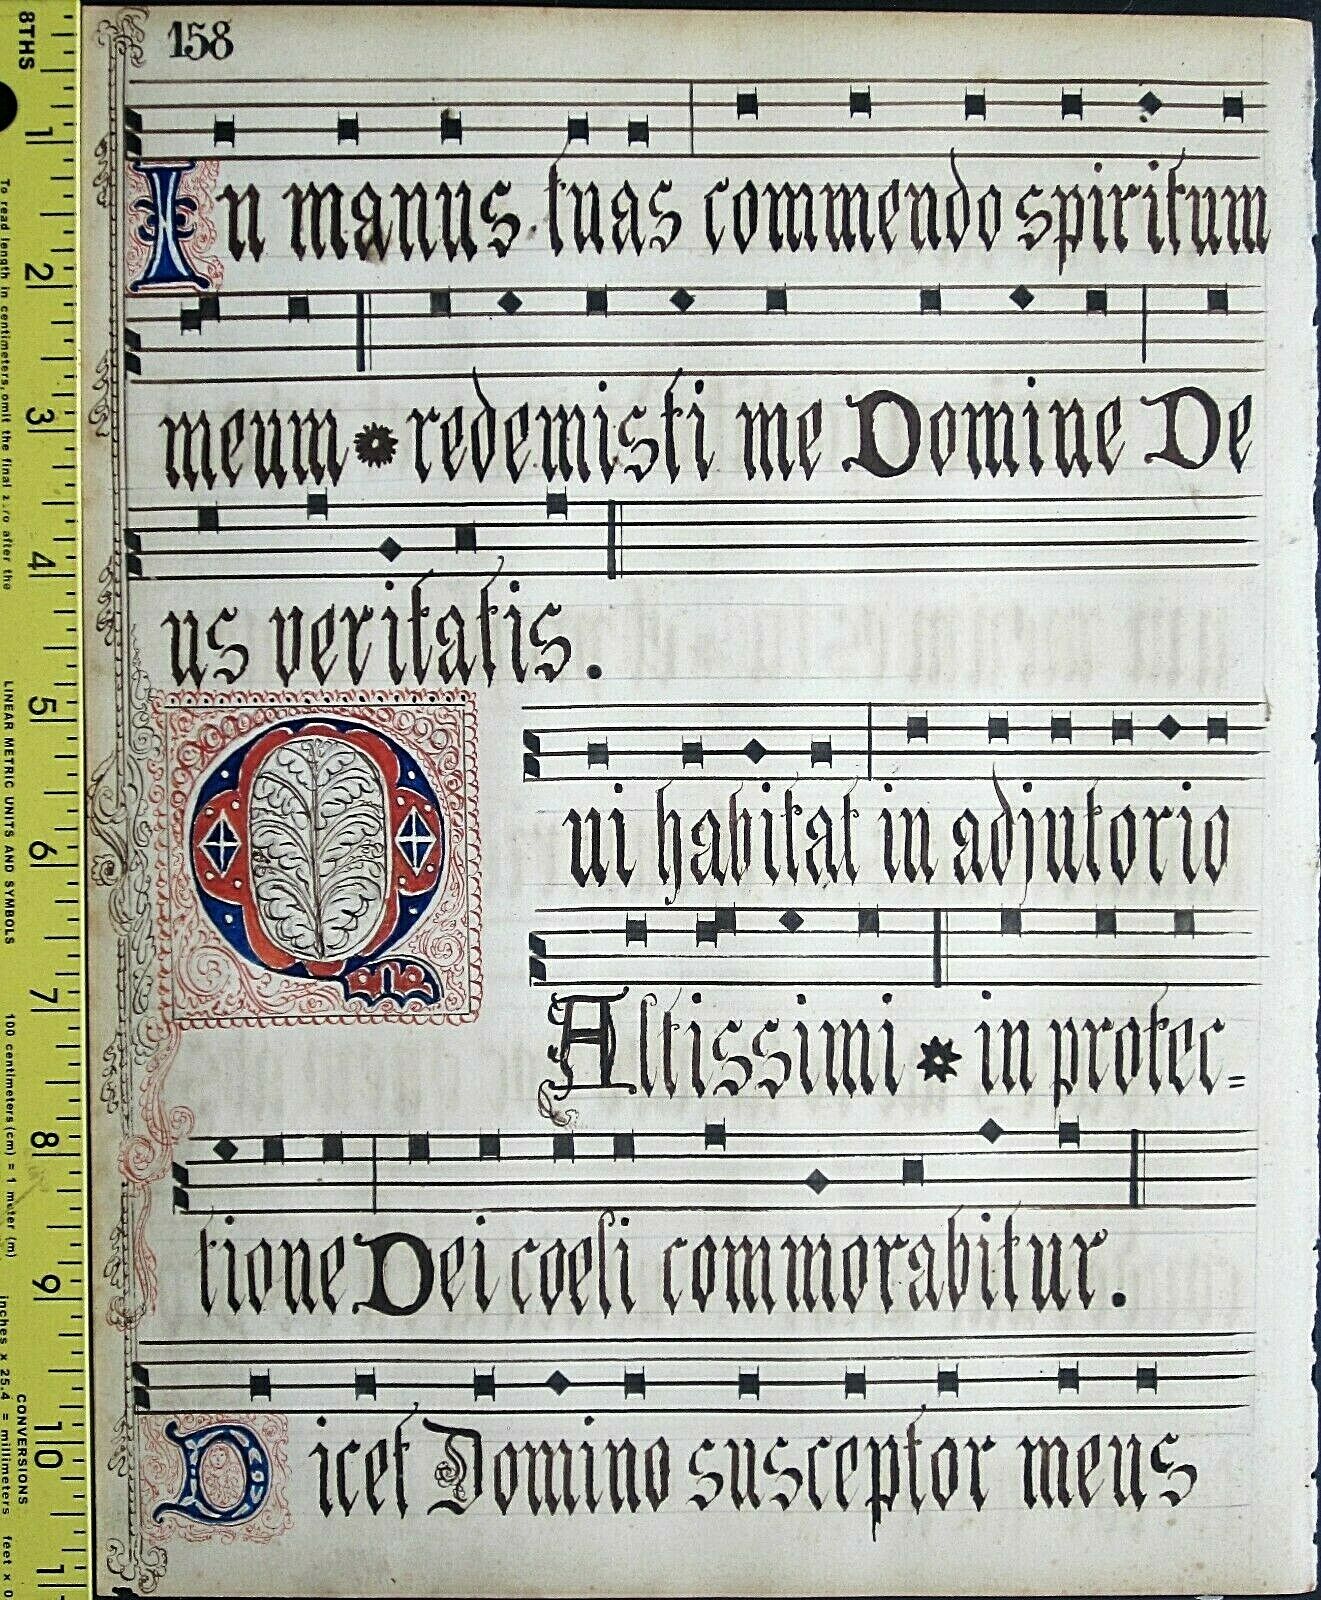 158
In manus tuas commendo spiritum
meum * redemisti me Domine De
us veritatis.
Qui habitat in adjutorio
Altissimi * in protec=
tione Dei coeli commorabitur.
Dicet Domino susceptor meus
8THS
1
2
3
4
5
6
7
8
9
10
1
To read length in centimeters, omit the final zero after the
LINEAR METRIC UNITS AND SYMBOLS
100 centimeters (cm) = 1 meter (m)
CONVERSIONS
inches x 25.4 = millimeters
feet x 0